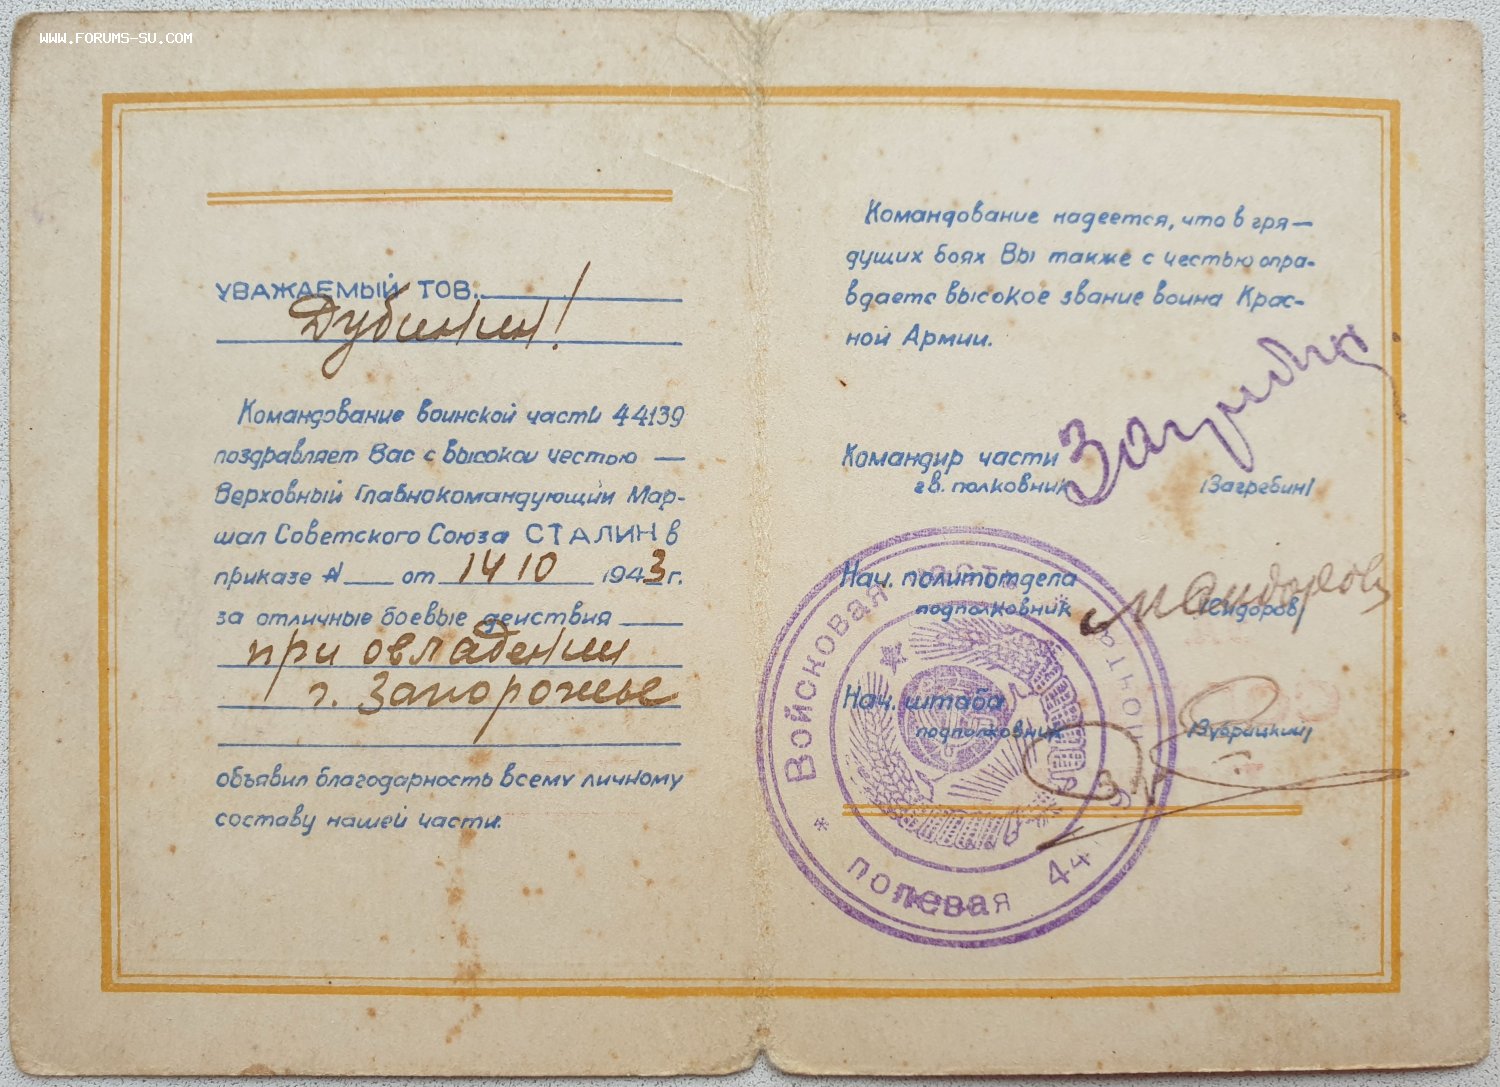 WWW.FORUMS-SU.COM
УВАЖАЕМЫЙ ТОВ.
Дубинин!
Командование воинской части 44139
поздравляет Вас с высокой честью —
Верховный Главнокомандующий Мар-
шал Советского Союза СТАЛИН в
приказе № от 14 10 1943 г.
за отличные боевые действия
при овладении
г. Запорожье
объявил благодарность всему личному
составу нашей части.
Командование надеется, что в гря-
дущих боях Вы также с честью опра-
вдаете высокое звание воина Крас-
ной Армии.
Командир части
гв. полковник /Загребин/
Нач. политотдела
подполковник /Сидоров/
Нач. штаба
подполковник
Войсковая часть
полевая почта